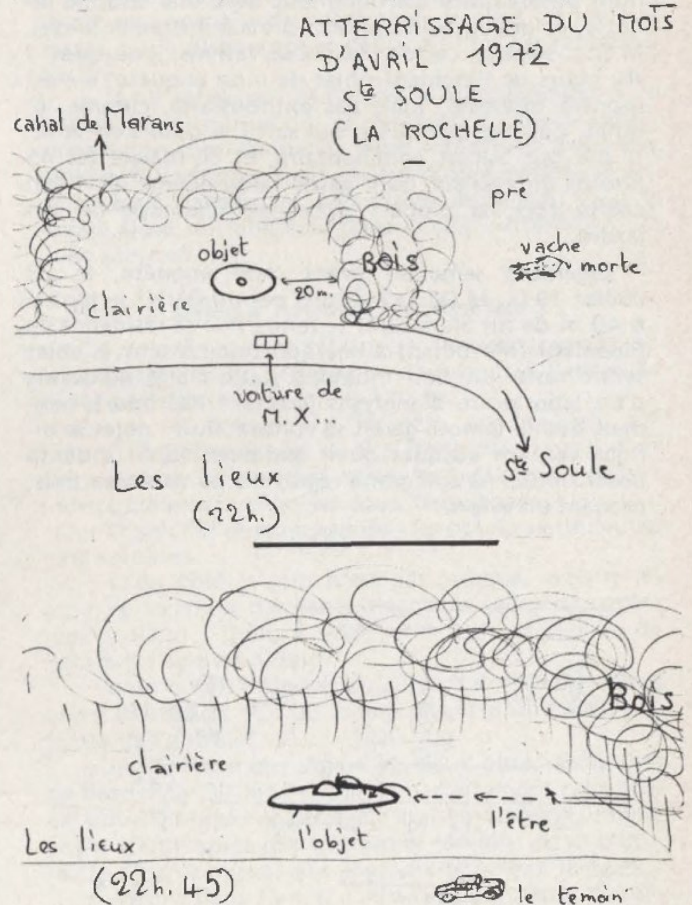 ATTERRISSAGE DU MOIS
D'AVRIL 1972
Ste SOULE
(LA ROCHELLE)
canal de Marans
pré
objet
BOIS
vache
morte
20m
clairière
voiture de
M. X...
Ste Soule
Les lieux
(22h.)
Bois
clairière
l'être
l'objet
Les lieux
(22h. 45)
le témoin